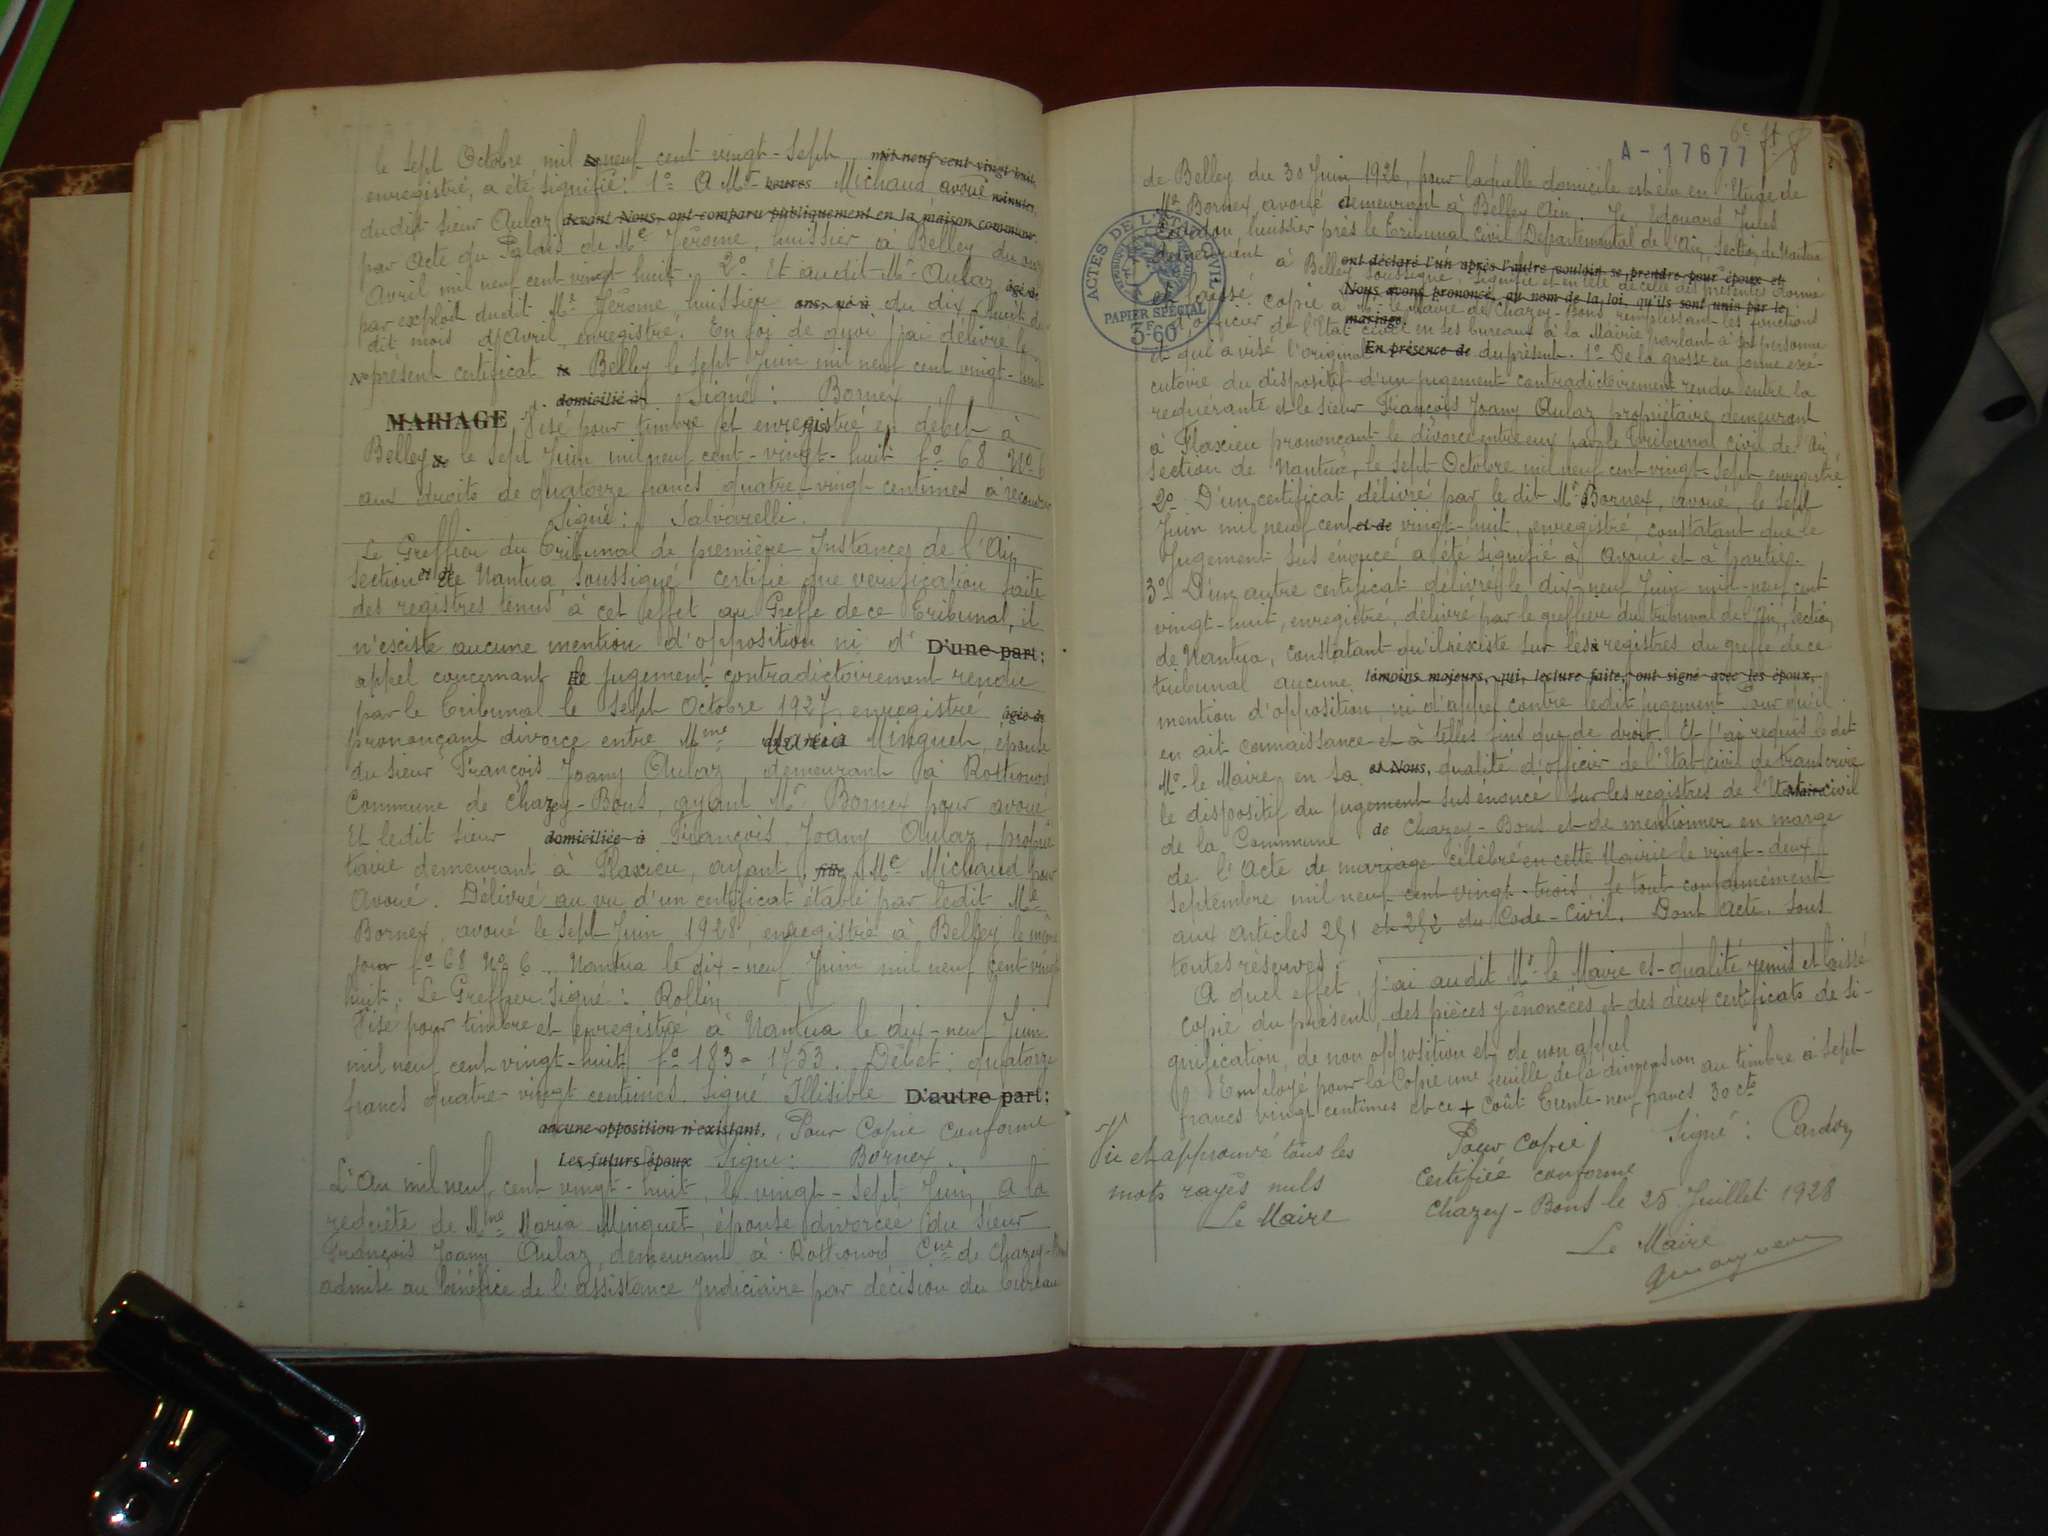 le sept Octobre mil neuf cent vingt-sept mil neuf cent vingt-huit,
enregistré, a été signifié: 1º A Me heures Michaud avoué minutes,
dudit sieur Aulaz, devant Nous, ont comparu publiquement en la maison commune:
par Acte du Palais de Me Jérome, huissier à Belley du
Avril mil neuf cent vingt-huit. 2º Et audit Mr Aulaz âgé de
par exploit dudit Me Jérome huissier ans, né à du dix-huit du
dit mois d'Avril, enregistré. En foi de quoi j'ai délivré le
No présent certificat le Belley le sept Juin mil neuf cent vingt-huit
domicilié à Signé: Bornex
MARIAGE Visé pour timbre et enregistré en débet à
Belley & le sept Juin mil neuf cent-vingt-huit fº 68 Nº 6
aux droits de quatorze francs quatre-vingt-centimes à recouvrer
Signé: Salvarelli.
Le Greffier du Tribunal de première Instance de l'Ain
section et de Nantua soussigné certifie que vérification faite
des registres tenus à cet effet au Greffe de ce Tribunal, il
n'esciste aucune mention d'opposition ni d' D'une part;
appel concernant le jugement contradictoirement rendu
par le Tribunal le sept Octobre 1927 enregistré âgée de
prononçant divorce entre Mme Maria Minguet, épouse
du sieur François Joany Aulaz, demeurant à Rothonod
Commune de Chazey-Bons, ayant Mr Bornex pour avoué
Et ledit sieur domiciliée à François Joany Aulaz, proprié
taire demeurant à Flaxieu, ayant fille Me Michaud pour
Avoué. Délivré au vu d'un certificat établi par ledit Me
Bornex, avoué le sept Juin 1928, enregistré à Belley le même
jour fº 68 Nº 6. Nantua le dix-neuf Juin mil neuf cent vingt
huit. Le Greffier Signé: Rollin
Visé pour timbre et enregistré à Nantua le dix-neuf Juin
mil neuf cent vingt-huit fº 183 - 1753. Débet: quatorze
francs quatre-vingt centimes. Signé Illisible D'autre part;
aucune opposition n'existant. Pour Copie conforme
Les futurs époux Signé: Bornex.
L'An mil neuf cent vingt-huit, le vingt-sept Juin, à la
requête de Mme Maria Minguet, épouse divorcée du sieur
François Joany Aulaz, demeurant à Rothonod Cne de Chazey-Bons
admise au bénéfice de l'assistance judiciaire par décision du bureau
A-17677
6e
8
de Belley du 30 Juin 1926, pour laquelle domicile est élu en l'Etude de
Me Bornex avoué demeurant à Belley Ain. Je Edouard Jules
Cardon, huissier près le Tribunal Civil Départemental de l'Ain, section de Nantua
demeurant à Belley soussigné, signifié et en tête de celle des présentes donné
ont déclaré l'un après l'autre vouloir se prendre pour époux et
Nous avons prononcé, au nom de la loi, qu'ils sont unis par le
mariage.
et laissé copie à Mr le Maire de Chazey-Bons remplissant les fonctions
d'officier de l'Etat civil en ses bureaux à la Mairie parlant à sa personne
et qui a visé l'original En présence de du présent. 1º De la grosse en forme exé-
cutoire du dispositif d'un jugement contradictoirement rendu entre la
requérante et le sieur François Joany Aulaz propriétaire demeurant
à Flaxieu prononçant le divorce entre eux par le Tribunal civil de l'Ain
section de Nantua, le sept Octobre mil neuf cent vingt-sept enregistré
2º D'un certificat délivré par le dit Me Bornex, avoué, le sept
Juin mil neuf cent et de vingt-huit, enregistré, constatant que le
Jugement sus énoncé a été signifié à avoué et à partie.
3º D'un autre certificat délivré le dix-neuf Juin mil-neuf cent
vingt-huit, enregistré, délivré par le greffier du tribunal de l'Ain, section
de Nantua, constatant qu'il n'existe sur les registres du greffe de ce
tribunal aucune témoins majeurs, qui, lecture faite, ont signé avec les époux,
mention d'opposition, ni d'appel contre ledit jugement Pour qu'il
en ait connaissance et à telles fins que de droit. Et j'ai requis le dit
Mr le Maire en sa et Nous, qualité d'officier de l'Etat-civil de transcrire
le dispositif du jugement sus énoncé sur les registres de l'Etat Maire civil
de la Commune de Chazey-Bons et de mentionner en marge
de l'Acte de mariage célébré en cette Mairie le vingt-deux
septembre mil neuf cent vingt-trois. Le tout conformément
aux articles 251 et 252 du Code-Civil. Dont Acte. Sous
toutes réserves.
A quel effet, j'ai audit Mr le Maire es-qualité remis et laissé
copie du présent, des pièces y énoncées et des deux certificats de si-
gnification, de non opposition et de non appel
Employé pour la Copie une feuille de la dimension au timbre à sept
francs vingt centimes et ce + Coût Trente-neuf francs 30 cts
Signé: Cardon
Vu et approuvé tous les
mots rayés nuls
Le Maire
Pour copie
Certifiée conforme
Chazey-Bons le 25 Juillet 1928
Le Maire
ACTES DE L'ETAT CIVIL
PAPIER SPECIAL
3F60